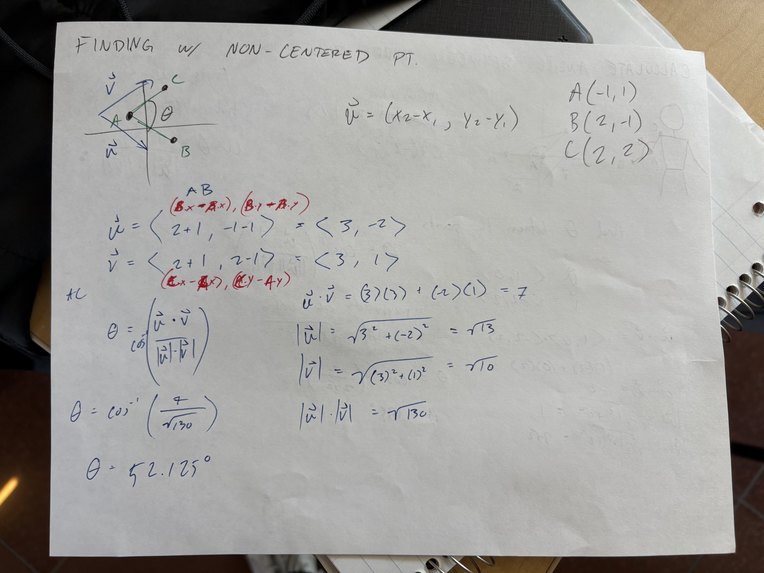 FINDING w/ NON-CENTERED PT.
v⃗
C
A
θ
B
u⃗
v⃗ = (x₂-x₁, y₂-y₁)
A(-1, 1)
B(2, -1)
C(2, 2)
AB
(B.x - A.x), (B.y - A.y)
u⃗ = < 2+1, -1-1 > = < 3, -2 >
v⃗ = < 2+1, 2-1 > = < 3, 1 >
(C.x - A.x), (C.y - A.y)
AC
u⃗ · v⃗ = (3)(3) + (-2)(1) = 7
θ = cos⁻¹ (u⃗ · v⃗ / |u⃗|·|v⃗|)
|u⃗| = √(3² + (-2)²) = √13
|v⃗| = √((3)² + (1)²) = √10
θ = cos⁻¹ (7 / √130)
|u⃗|·|v⃗| = √130
θ = 52.125°